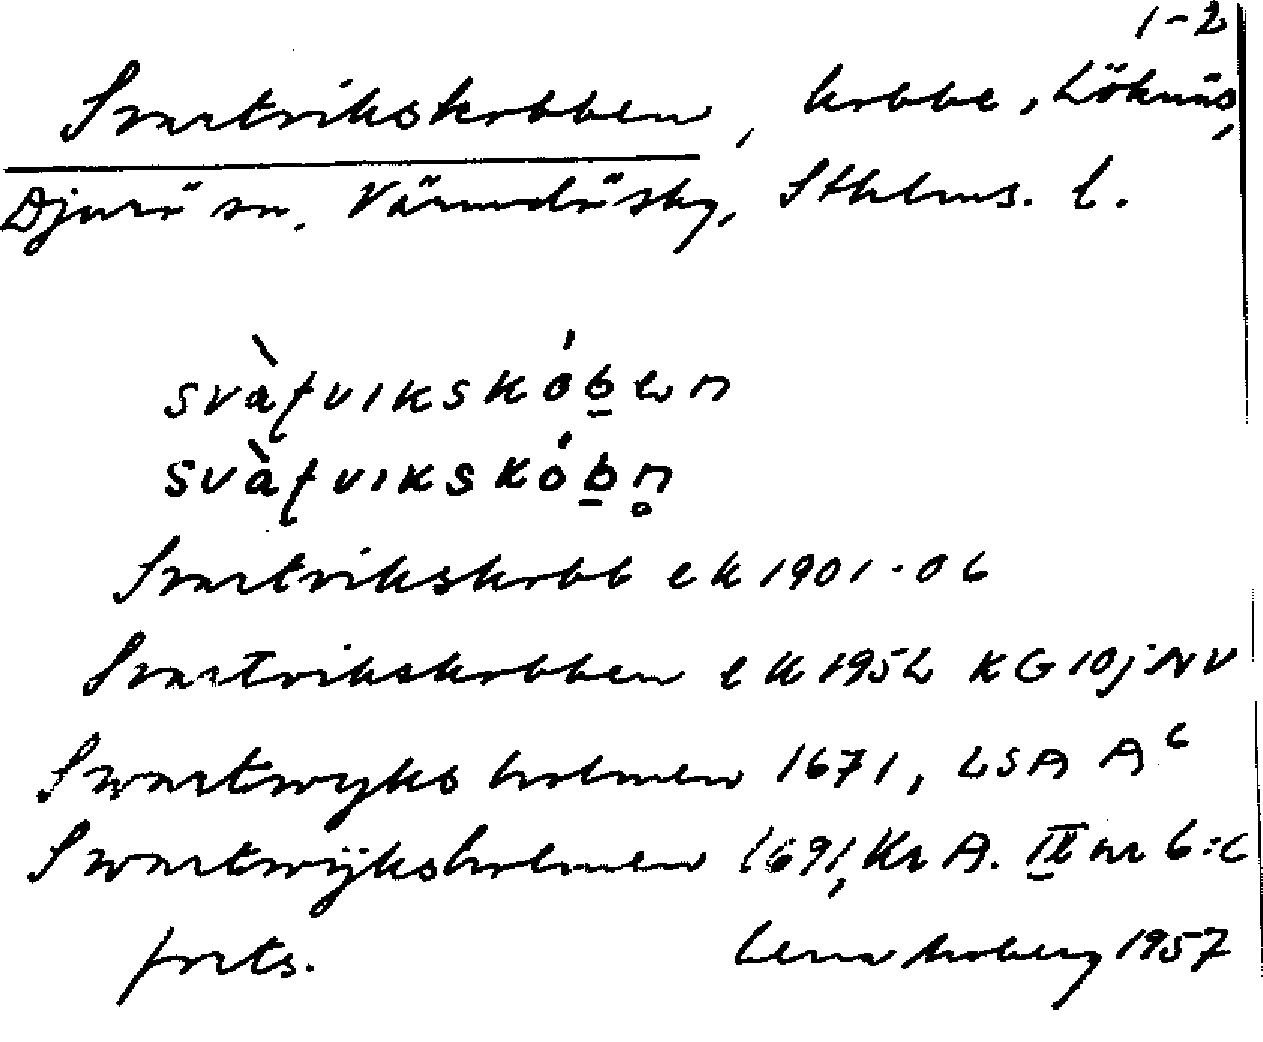 1-2
Svartvikskobben, kobbe, Löknäs,
Djurö sn. Värmdö skg, Sthlms. l.
svàʈvikskób̲en
svàʈvikskób̲n̥
Svartvikskobb ek 1901-06
Svartvikskobben ek 1952 KG 10j NV
Swartwyks holmen 1671, LSA A6
Swartwÿksholmen 1691, KrA. IX nr 6:c
forts. Lena Moberg 1957